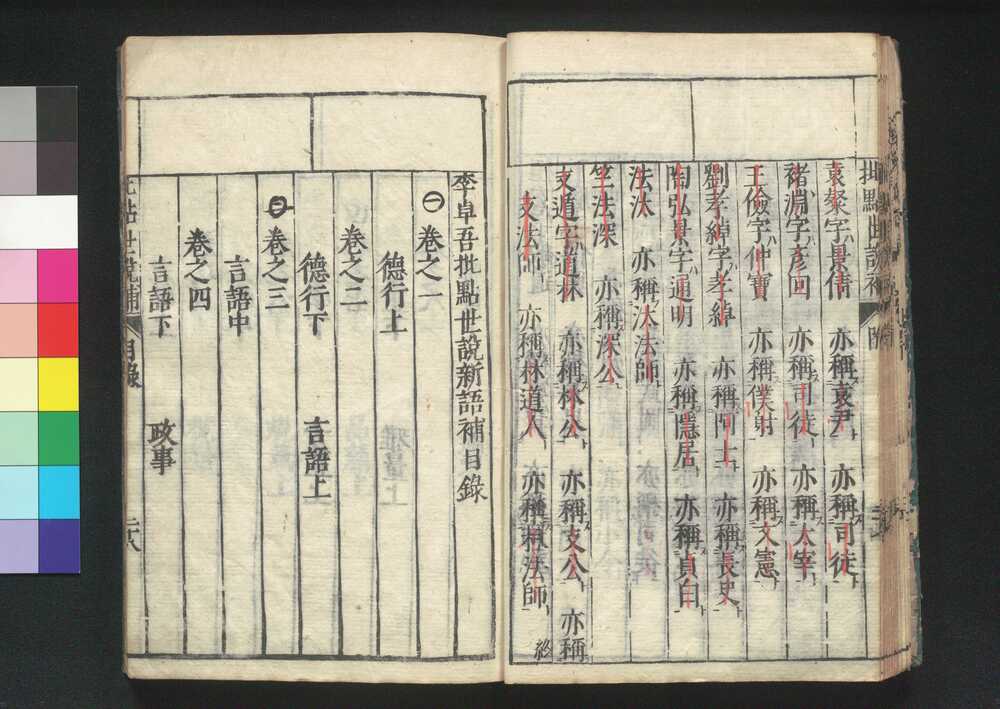 袁粲字景倩　亦稱袁尹　亦稱司徒
褚淵字彥回　亦稱司徒　亦稱太宰
王儉字仲寶　亦稱僕射　亦稱文憲
劉孝綽字孝綽　亦稱阿士　亦稱長史
陶弘景字通明　亦稱隱居　亦稱貞白
法汰　亦稱汰法師
竺法深　亦稱深公
支遁字道林　亦稱林公　亦稱支公　亦稱
支法師　亦稱林道人　亦稱林法師　終
李卓吾批點世說新語補目錄
㊀　卷之一
德行上
卷之二
德行下　言語上
㊁　卷之三
言語中
卷之四
言語下　政事
批點世說補　目錄　二十八